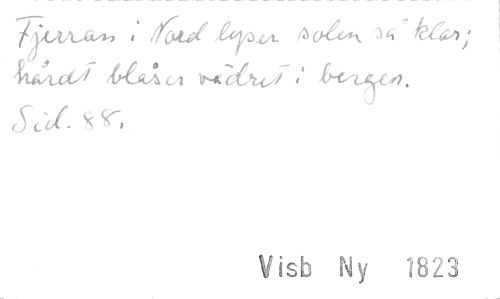 Fjerran i Nord lyser solen så klar;
hårdt blåser vädret i bergen.
Sid. 88.
Visb Ny 1823